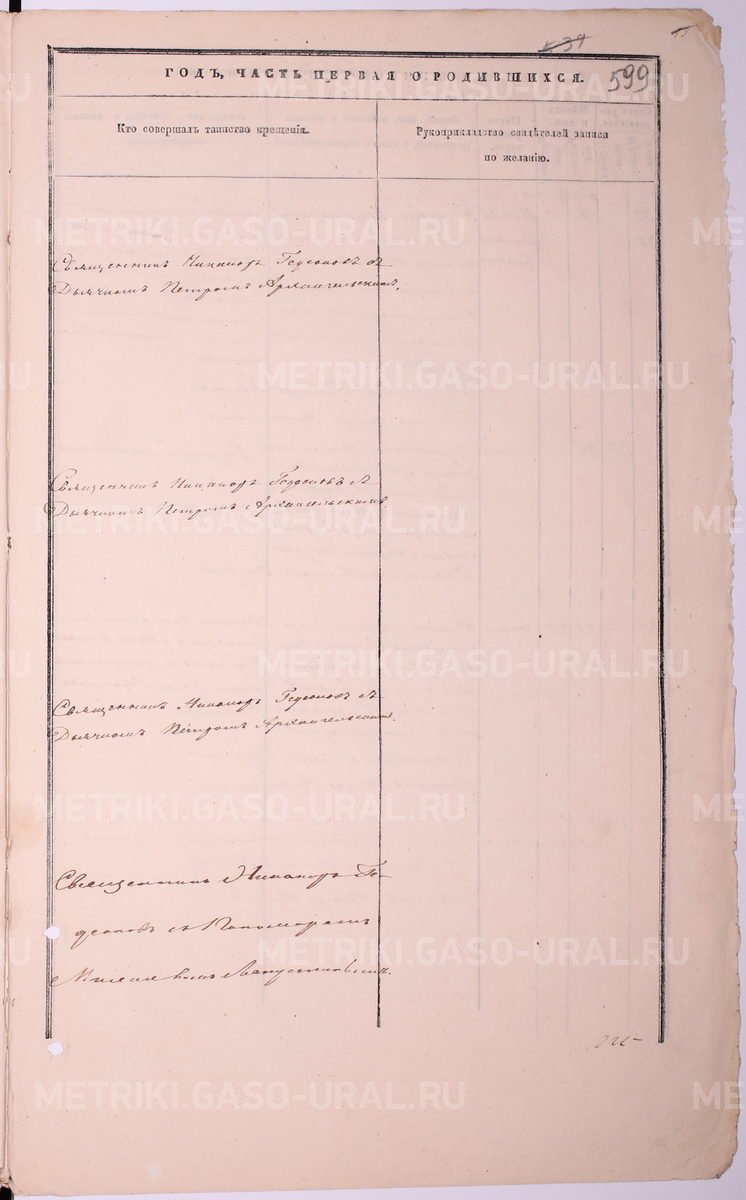 599
ГОДЪ, ЧАСТЬ ПЕРВАЯ О РОДИВШИХСЯ.
Кто совершалъ таинство крещенія.
Рукоприкладство свидѣтелей записи
по желанію.
Священникъ Никаноръ Гедеоновъ съ
Дьячкомъ Петромъ Архангельскимъ.
Священникъ Никаноръ Гедеоновъ съ
Дьячкомъ Петромъ Архангельскимъ.
Священникъ Никаноръ Гедеоновъ съ
Дьячкомъ Петромъ Архангельскимъ.
Священникъ Никаноръ Ге-
деоновъ съ Пономаремъ
METRIKI.GASO-URAL.RU